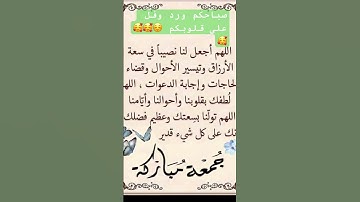 صباحكم ورد وفل
على قلوبكم 🥰🥰🥰
🥰
اللهم أجعل لنا نصيباً في سعة
الأرزاق وتيسير الأحوال وقضاء
لحاجات وإجابة الدعوات ، اللهـ
لُطفك بقلوبنا وأحوالنا وأيّامنا
اللهم تولّنا بسِعتك وعظيم فضلك
نك على كل شيء قدير
جُمعَة مُبَاركَة